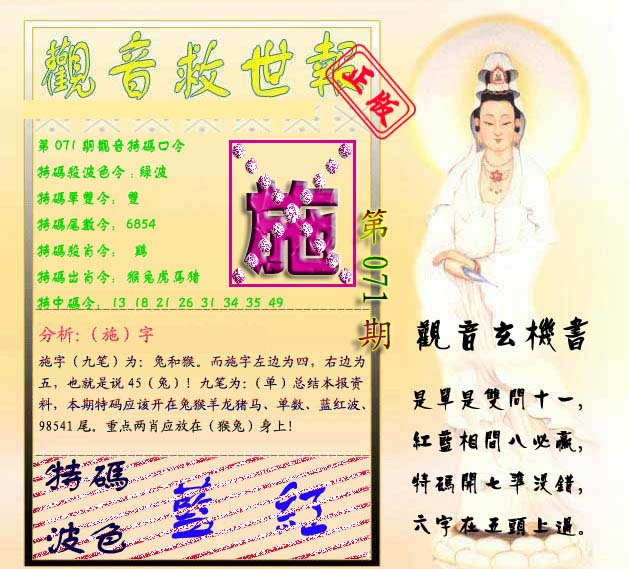 觀音救世報
正版
第071期觀音特碼口令
特碼殺波色令:綠波
特碼單雙令: 雙
特碼尾數令: 6854
特碼殺肖令: 鷄
特碼出肖令: 猴兔虎馬猪
特中碼令: 13 18 21 26 31 34 35 49
施
第071期
分析:（施）字
施字（九笔）为：兔和猴。而施字左边为四，右边为
五，也就是说 45（兔）！九笔为：（单）总结本报资
料，本期特码应该开在兔猴羊龙猪马、单数、蓝红波、
98541 尾。重点两肖应放在（猴兔）身上！
特碼
波色
藍 紅
觀音玄機書
是單是雙問十一，
紅藍相間八必贏，
特碼開七準沒錯，
六字在五頭上過。